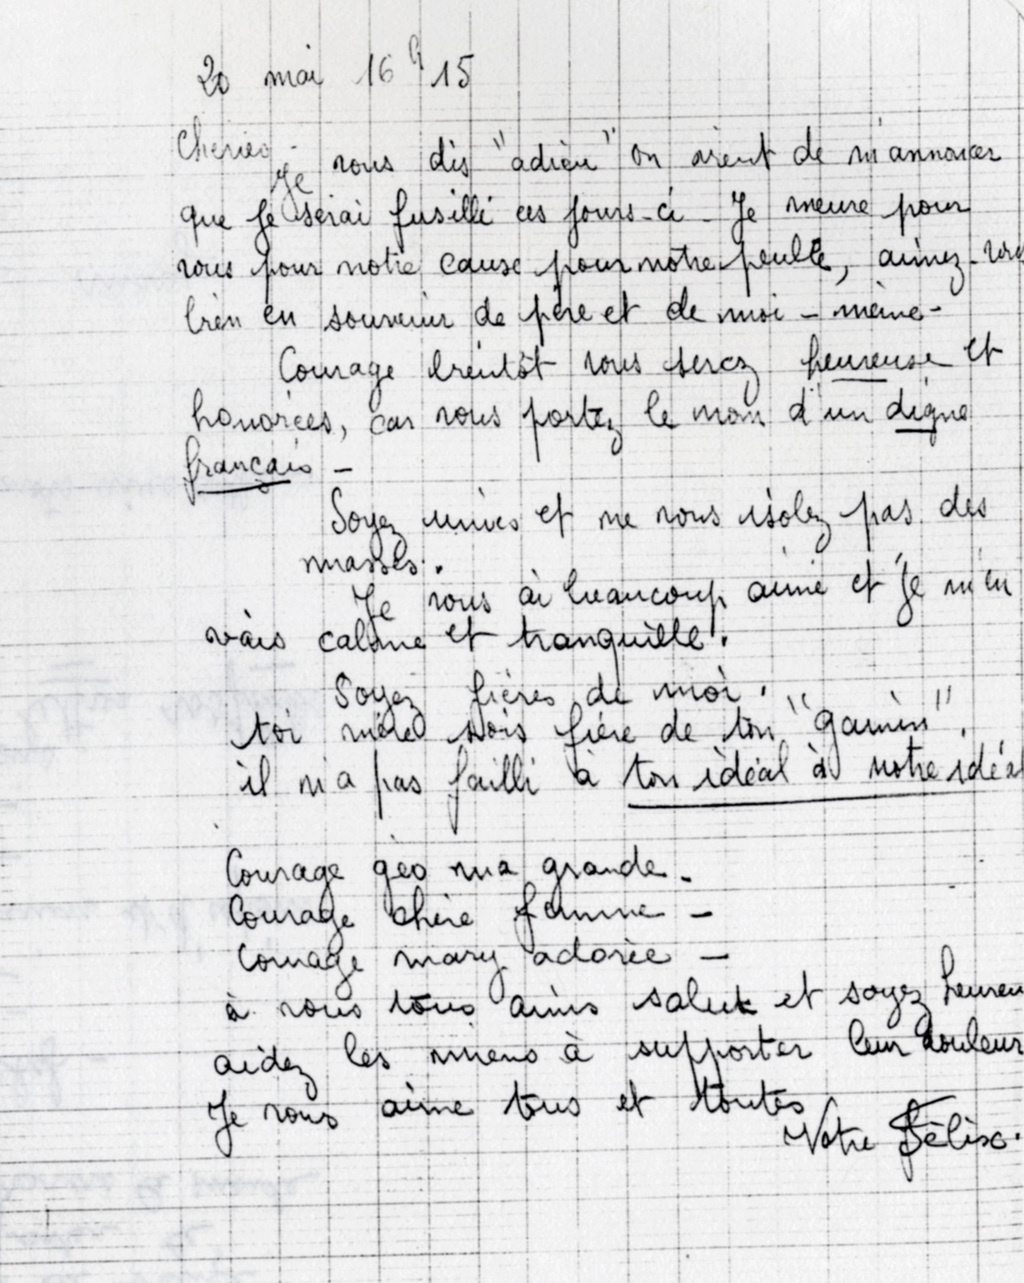 20 mai 16h15
Chéries
Je vous dis "adieu" on vient de m'annoncer
que je serai fusillé ces jours-ci. Je meure pour
vous pour notre cause pour notre peuple, aimez-vous
bien en souvenir de père et de moi-même-
Courage bientôt vous serez heureuse et
honorées, car vous portez le nom d'un digne
français -
Soyez unies et ne vous isolez pas des
masses.
Je vous ai beaucoup aimé et je m'en
vais calme et tranquille.
Soyez fières de moi.
toi mère sois fière de ton "gamin".
il n'a pas failli à ton idéal à notre idéal
Courage géo ma grande.
Courage chère femme -
Courage mary adorée -
à vous tous amis salut et soyez heureu
aidez les miens à supporter leur douleur
Je vous aime tous et toutes
Votre Félix.